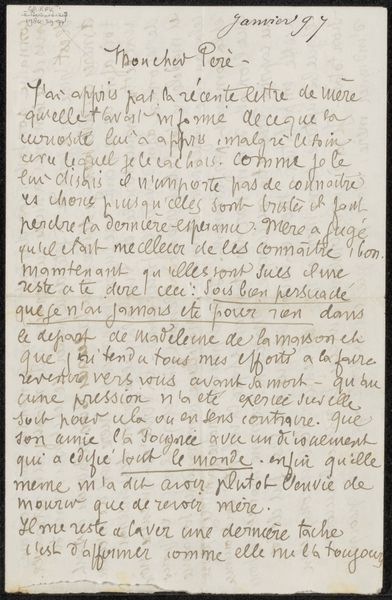 Janvier 97
Mon cher Père -
J'ai appris par la récente lettre de mère
qu'elle t'avait informé de ce que la
curiosité lui a appris, malgré le soin
avec lequel je le cachais. Comme je le
lui disais il n'importe pas de connaître
les choses puisqu'elles sont tristes et font
perdre la dernière espérance. Mère a jugé
qu'il était meilleur de les connaître, bon.
maintenant qu'elles sont sues il me
reste à te dire ceci: Sois bien persuadé
que je n'ai jamais été pour rien dans
le départ de Madeleine de la maison et
que j'ai tendu tous mes efforts à la faire
revenir vers vous avant sa mort - qu'au
cune pression n'a été exercée sur elle
soit pour cela ou en sens contraire. que
son amie l'a soignée avec un dévouement
qui a édifié tout le monde. enfin qu'elle
meme m'a dit avoir plutot l'envie de
mourir que de revoir mère.
Il me reste a laver une dernière tache
c'est d'affirmer comme elle me l'a toujours